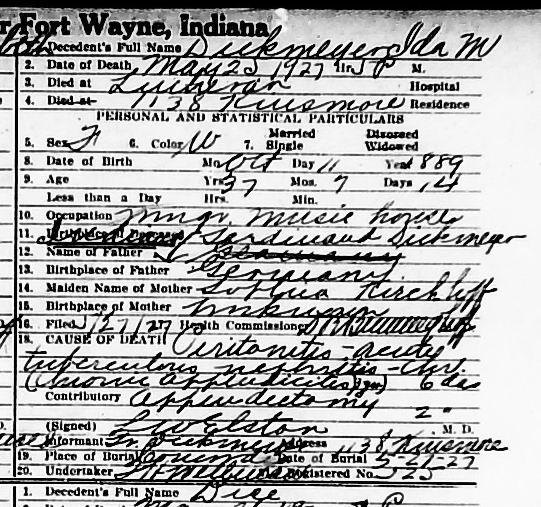 r Fort Wayne, Indiana
Decedent's Full Name Dickmeyer, Ida M
2. Date of Death May 25 1927 Hr. 5 P M.
3. Died at Lutheran Hospital
4. Died at 1138 Kinsmore Residence
PERSONAL AND STATISTICAL PARTICULARS
Married Divorced
5. Sex F 6. Color W 7. Single Widowed
8. Date of Birth Mo. Oct Day 11 Year 889
9. Age Yrs. 37 Mos. 7 Days 14
Less than a Day Hrs. Min.
10. Occupation Mngr. Music house
11. Birthplace of Ferdinand Dickmeyer
12. Name of Father Germany
13. Birthplace of Father Germany
14. Maiden Name of Mother Sophia Kirchhoff
15. Birthplace of Mother Unknown
16. Filed 5/27/27 Health Commissioner
18. CAUSE OF DEATH Peritonitis - acute
tuberculous - nephritis - chr.
(chronic appendicitis) 6 das
Contributory Appendectomy
2 "
(Signed) L W Elston M. D.
Informant Fr. Dickmeyer Address 1138 Kinsmore
19. Place of Burial Concordia Date of Burial 5-27-27
20. Undertaker Registered No. 525
1. Decedent's Full Name Dice